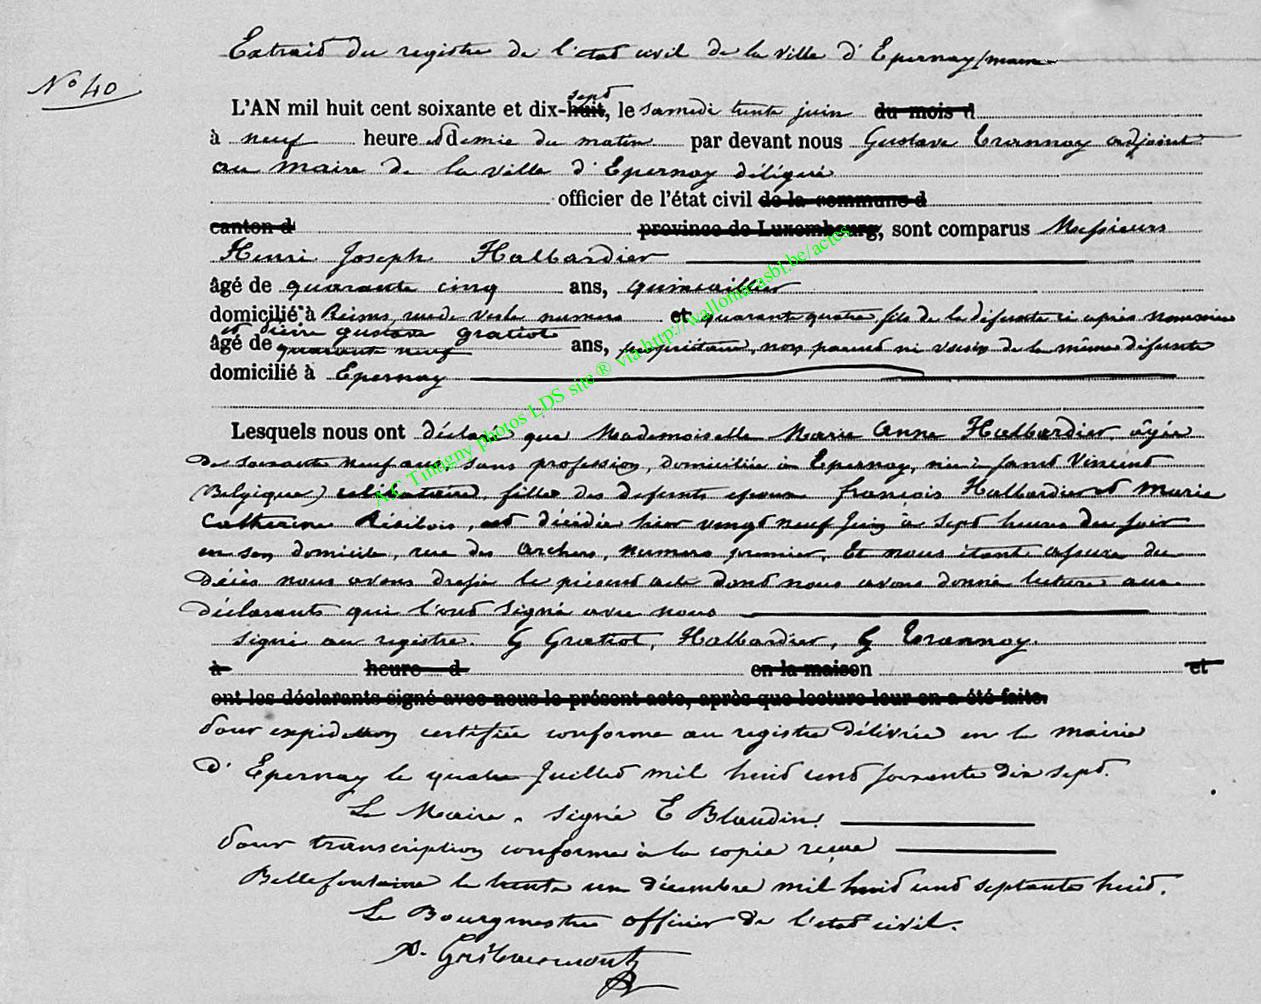 Extrait du registre de l'état civil de la ville d'Epernay (marne
N° 40
L'AN mil huit cent soixante et dix-huit, sept le samedi trente juin du mois d
à neuf heure et demie du matin par devant nous Gustave Trannoy adjoint
au maire de la ville d'Epernay délégué
officier de l'état civil de la commune d
canton d province de Luxembourg, sont comparus Messieurs
Henri Joseph Halbardier
âgé de quarante cinq ans, quincaillier
domicilié à Reims, rue de Vesle numero et quarante quatre, fils de la défunte ci après nommée
et pierre gustave gratiot
âgé de quarante neuf ans, propriétaire, non parent ni voisin de la même défunte
domicilié à Epernay
Lesquels nous ont déclaré, que Mademoiselle Marie Anne Halbardier, âgée
de soixante neuf ans, sans profession, domiciliée à Epernay, née à Saint Vincent
(Belgique) célibataire, fille des defunts epoux françois Halbardier et Marie
Catherine, est décédée hier vingt neuf Juin à sept heures du soir
en son domicile, rue des Archers, numero premier, Et nous étant assuré du
décès nous avons dressé le présent acte dont nous avons donné lecture aux
déclarants qui l'ont signé avec nous
signé au registre. G Gratiot, Halbardier, G Trannoy.
à heure d en la maison et
ont les déclarants signé avec nous le présent acte, après que lecture leur en a été faite.
Pour expédition certifiée conforme au registre délivrée en la mairie
d'Epernay le quatre Juillet mil huit cent soixante dix sept.
Le Maire. signé E Blandin.
Pour transcription conforme à la copie reçue
Bellefontaine le trente un décembre mil huit cent septante huit.
Le Bourgmestre officier de l'état civil.
AC Tintigny photos LDS site ® via http://wallonicasbl.be/actes